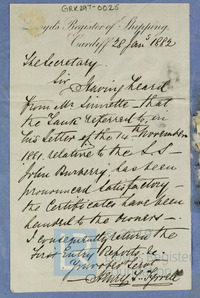 GRKDAT-0025
Lloyd's Register of Shipping,
Cardiff 28 Jany 1882
The Secretary.
Sir Having heard
from Mr Linnette - that
the Tank referred to in
his letter of the 14th November
1881, relative to the S.S.
John Bunberry, has been
pronounced satisfactory -
the Certificates have been
handed to the owners -
I consequently return the
First Entry Reports &c.
Your obedt Servt